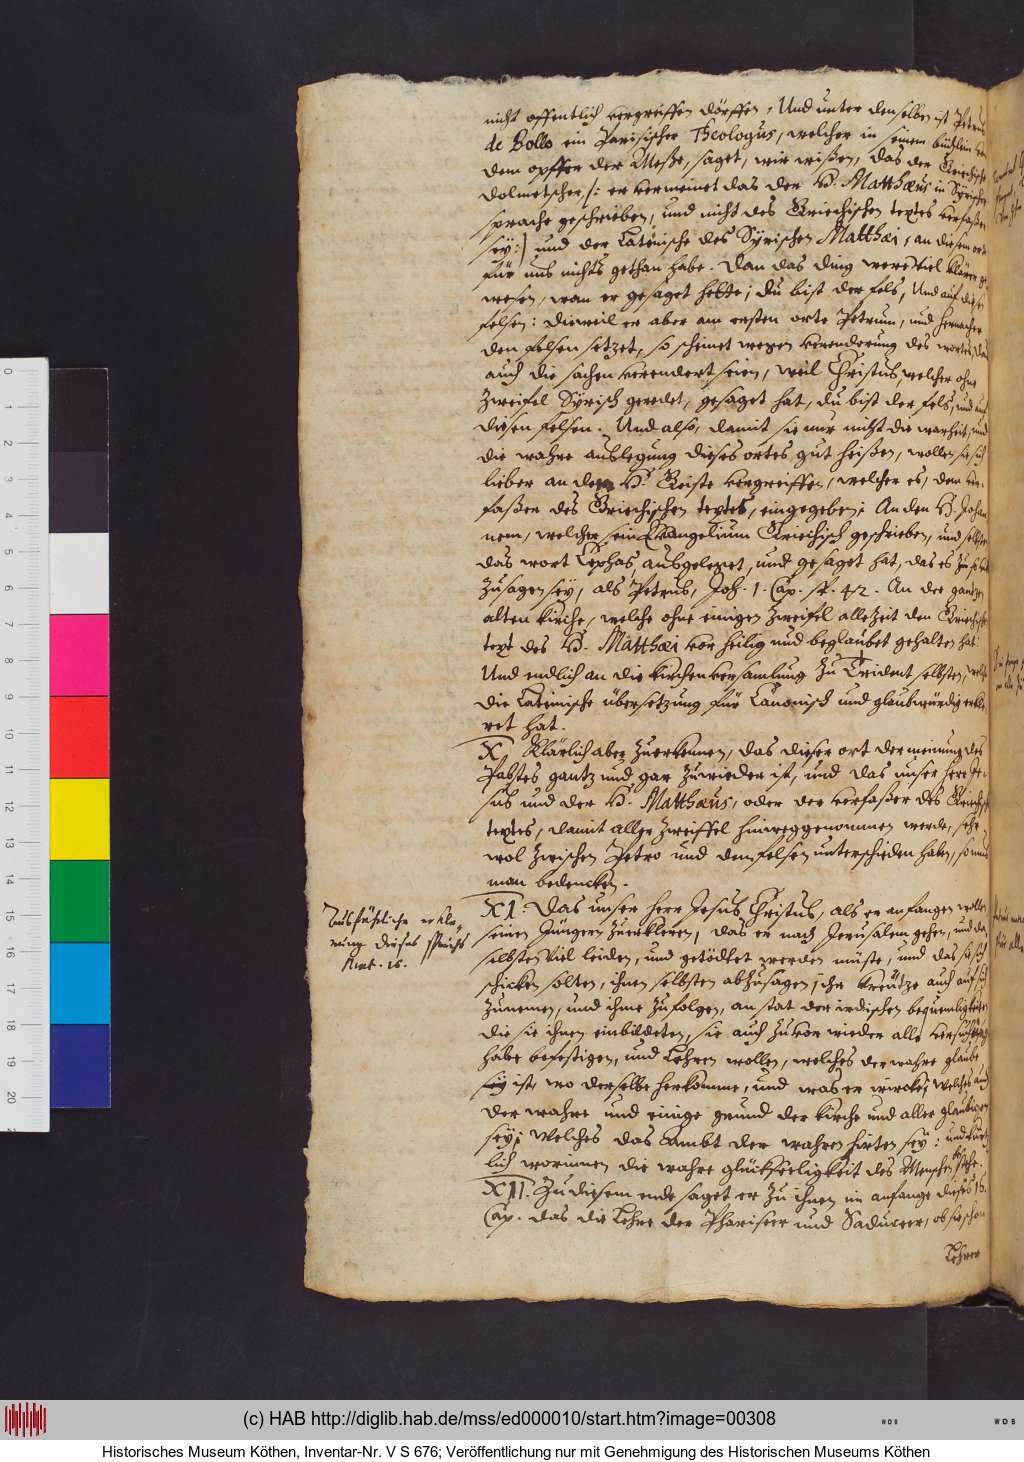 nicht offentlich vergreiffen dörffen, Und unter denselben ist Petrus
de Bollo ein Parisischer Theologus, welcher in seinem büchlein von
dem opffer der Meße, saget, wir wißen, das der Griechische
dolmetscher /: er vermeinet das der H. Matthæus in Syrischer
sprache geschrieben, und nicht des Griechischen textes verfaßer
sey :/ und der Lateinische des Syrischen Matthæi, an diesem orte
für uns nichts gethan habe. Dan das ding were viel klärer ge-
wesen, wan er gesaget hette; du bist der fels, Und auf diesen
felsen: dieweil er aber am ersten orte Petrum, und hernacher
den felsen setzet, so scheinet wegen verenderung des wortes, das
auch die sachen verendert seien, weil Christus, welcher ohne
zweifel Syrisch geredet, gesaget hat, du bist der fels, und auf
diesen felsen. Und also, damit sie nur nicht die warheit, und
die wahre außlegung dieses ortes gut heißen, wollen sie sich
lieber an dem H. Geiste vergreiffen, welcher es, dem ver-
faßer des Griechischen textes, eingegeben; An den H. Johan-
nem, welcher sein Evangelium Griechisch geschrieben, und selbsten
das wort Cephas, ausgeleget, und gesaget hat, das es zu
zusagen sey, als Petrus, Joh. 1. Cap. ℣. 42. An der gantzen
alten kirche, welche ohne einigen zweifel alle zeit den Griechischen
text des H. Matthæi vor heilig und beglaubet gehalten hat
Und endlich an die kirchenversamlung zu Trident selbsten, welche
die Lateinische übersetzung für Canonisch und glaubwürdig erkle-
ret hat.
X. Klärlich aber zuerkennen, das dieser ort der meinung des
Pabstes gantz und gar zuwieder ist, und das unser herr Je-
sus und der H. Matthæus, oder der verfaßer des Griechischen
textes, damit aller zweiffel hinweggenommen werde, sehr
wol zwischen Petro und dem felsen unterschieden haben, so mus
man bedencken.
XI. Das unser herr Jesus Christus, als er anfangen wollen
seinen Jüngern zuerkleren, das er nach Jerusalem gehen, und da-
selbsten viel leiden, und getödtet werden müste, und das sie sich
schicken solten, ihnen selbsten abzusagen, ihr kreütze auch auf sich
zunemen, und ihme zufolgen, an stat der irdischen bequemligkeiten
die sie ihnen einbildeten, sie auch zuvor wieder alle versuchung
habe befestigen, und Lehren wollen, welches der wahre glaube
sey ist, wo derselbe herkomme, und was er wircke, welches auch
der wahre und einige grund der kirche und aller glaubigen
sey, Welches das Ambt der wahren hirten sey: und kürtz-
lich worinnen die wahre glückseeligkeit des Menschen bestehe.
XII. Zu diesem ende saget er zu ihnen im anfange dieses 16.
Cap. das die Lehre der Phariseer und Saduceer, ob sie schon
Lehrer
Ausführliche erkle-
rung dieses spruchs
Matt. 16.
0 1 2 3 4 5 6 7 8 9 10 11 12 13 14 15 16 17 18 19 20
(c) HAB http://diglib.hab.de/mss/ed000010/start.htm?image=00308
Historisches Museum Köthen, Inventar-Nr. V S 676; Veröffentlichung nur mit Genehmigung des Historischen Museums Köthen